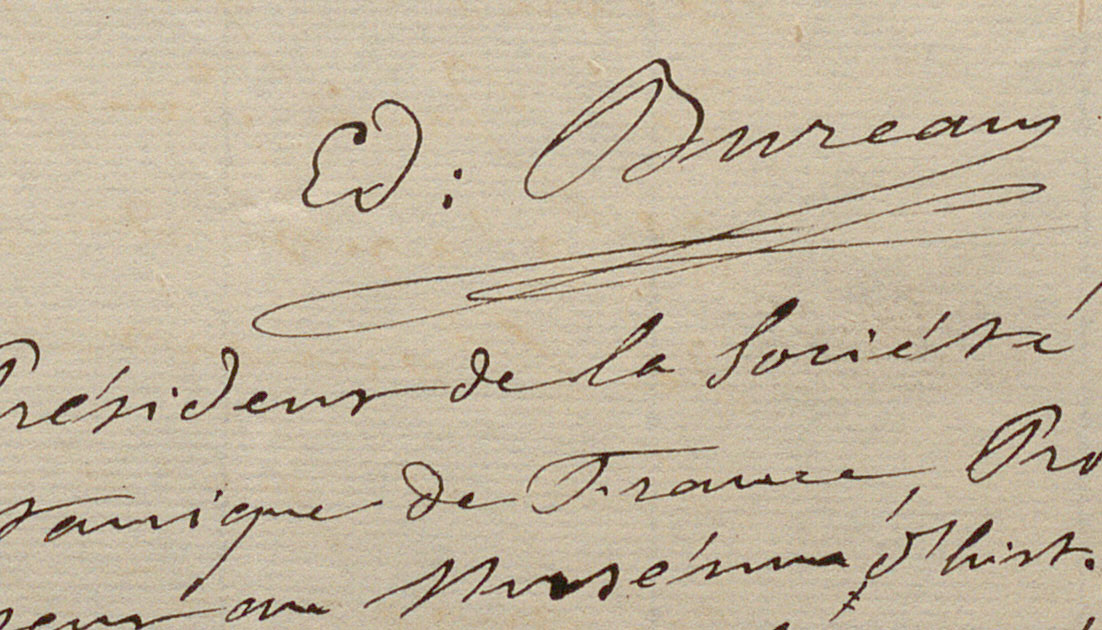 Ed: Bureau
Président de la Société
tanique de France, Pro
seur au Muséum d'hist.